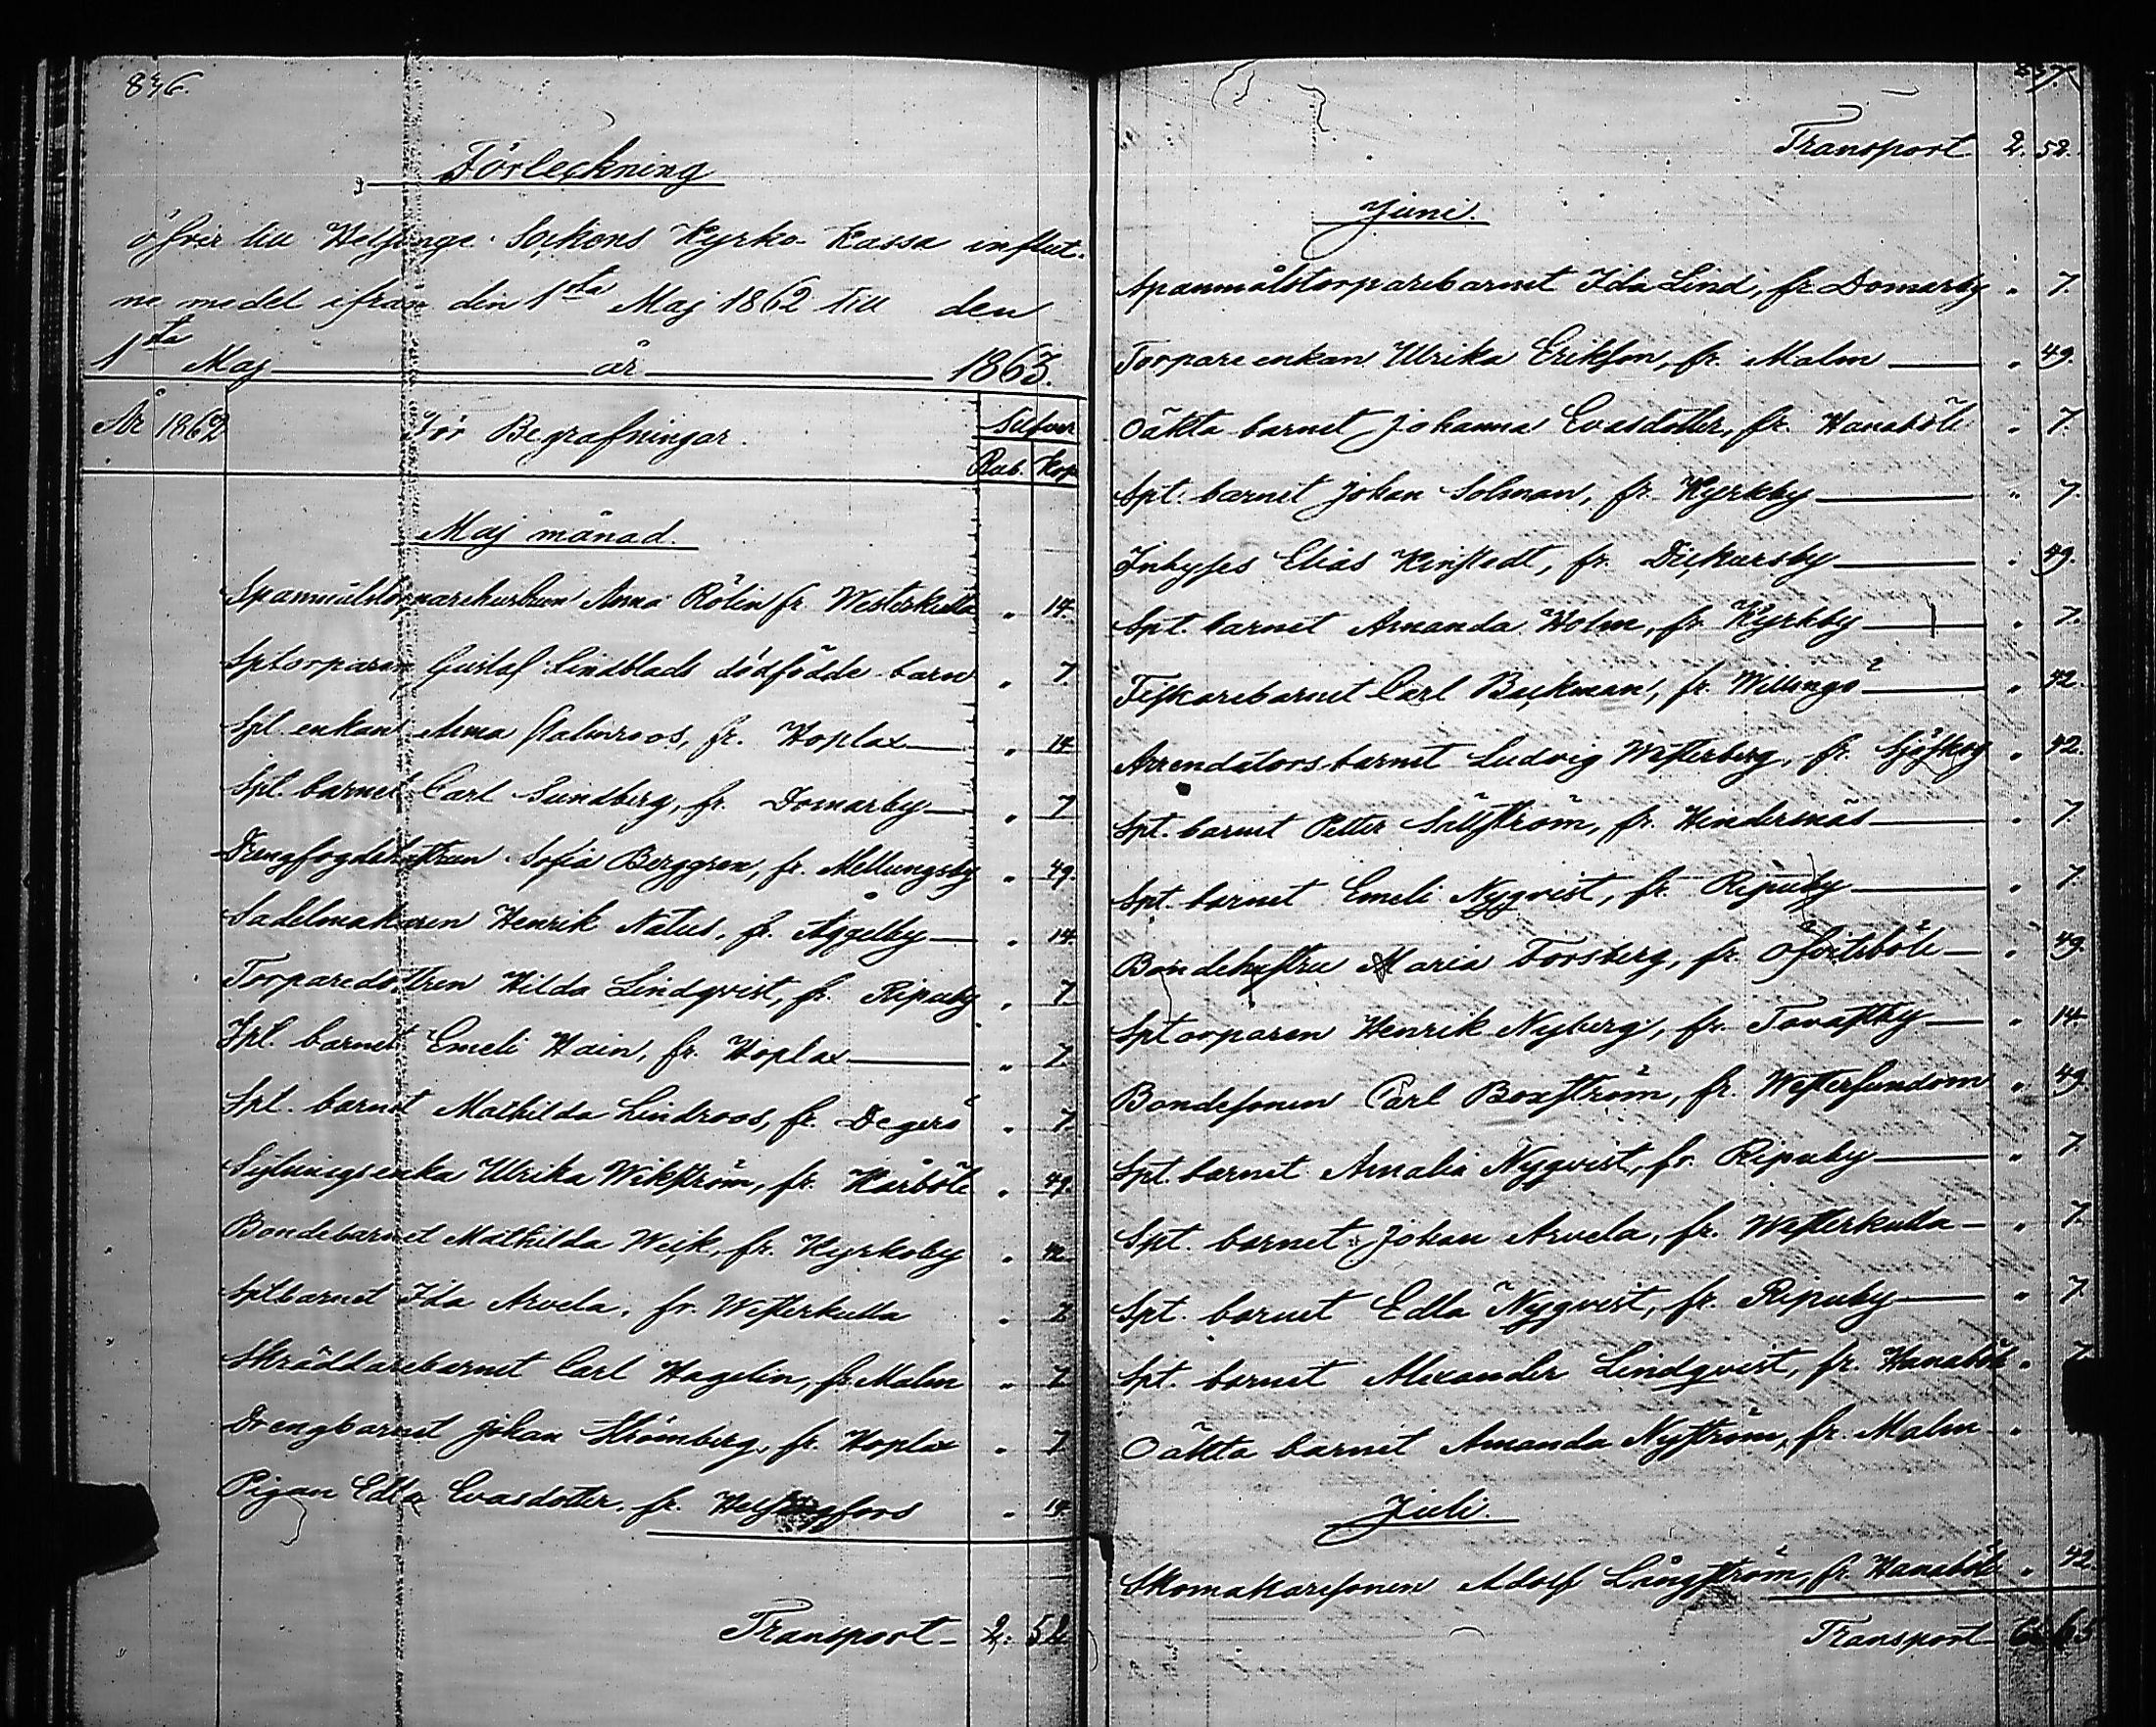 836.
Förteckning
öfver till Helsinge Sockens Kyrko-Kassa influt-
ne medel ifrån den 1sta Maj 1862 till den
1sta Maj år 1863.
År 1862 För Begrafningar. Silfver
Rub. Kop
Maj månad.
Spanmålstorparehustrun Anna Rölin fr. Westerkulla " 14.
Sptorparen Gustaf Lindblads dödfödde barn " 7.
Spt. enkan Anna Malmroos, fr. Hoplax " 14
Spt. barnet Carl Sundberg, fr. Domarby " 7
Drengfogdehustrun Sofia Berggren, fr. Mellungsby " 49.
Sadelmakaren Henrik Natus, fr. Åggelby " 14.
Torparedottren Hilda Lindqvist, fr. Ripuby " 7
Spt. barnet Emeli Hain, fr. Hoplax " 7
Spt. barnet Mathilda Lindroos, fr. Degerö " 7.
Sytningsenka Ulrika Wikström, fr. Kårböle " 49.
Bondebarnet Mathilda Weik, fr. Kyrkoby " 42
Sptbarnet Ida Arvela, fr. Westerkulla " 7
Skräddarebarnet Carl Hagelin, fr. Malm " 7
Drengbarnet Johan Strömberg, fr. Hoplax " 7
Pigan Edla Evasdotter, fr. Helsingfors " 14
Transport 2. 52
837.
Transport 2. 52.
Juni.
Spanmålstorparebarnet Ida Lind, fr. Domarby " 7.
Torpare enkan Ulrika Erikson, fr. Malm " 49.
Oäkta barnet Johanna Evasdotter, fr. Hanaböle " 7.
Spt. barnet Johan Solman, fr. Kyrkby " 7.
Inhyses Elias Kinstedt, fr. Dickursby " 49.
Spt. barnet Amanda Holm, fr. Kyrkby " 7.
Fiskarebarnet Carl Backman, fr. Willingö " 42.
Arrendatorsbarnet Ludvig Westerberg, fr. Sjöskog " 42.
Spt. barnet Petter Sällström, fr. Hindersnäs " 7
Spt. barnet Emeli Nyqvist, fr. Ripuby " 7.
Bondehustru Maria Forsberg, fr. Öfvitsböle " 49.
Sptorparen Henrik Nyberg, fr. Tavastby " 14
Bondesonen Carl Boxström, fr. Westersundom " 49.
Spt. barnet Amalia Nyqvist, fr. Ripuby " 7.
Spt. barnet Johan Arvela, fr. Westerkulla " 7.
Spt. barnet Edla Nyqvist, fr. Ripuby " 7.
Spt. barnet Alexander Lindqvist, fr. Hanaböle " 7
Oäkta barnet Amanda Nyström, fr. Malm "
Juli.
Skomakaresonen Adolf Långström, fr. Hanaböle " 42
Transport 6. 65